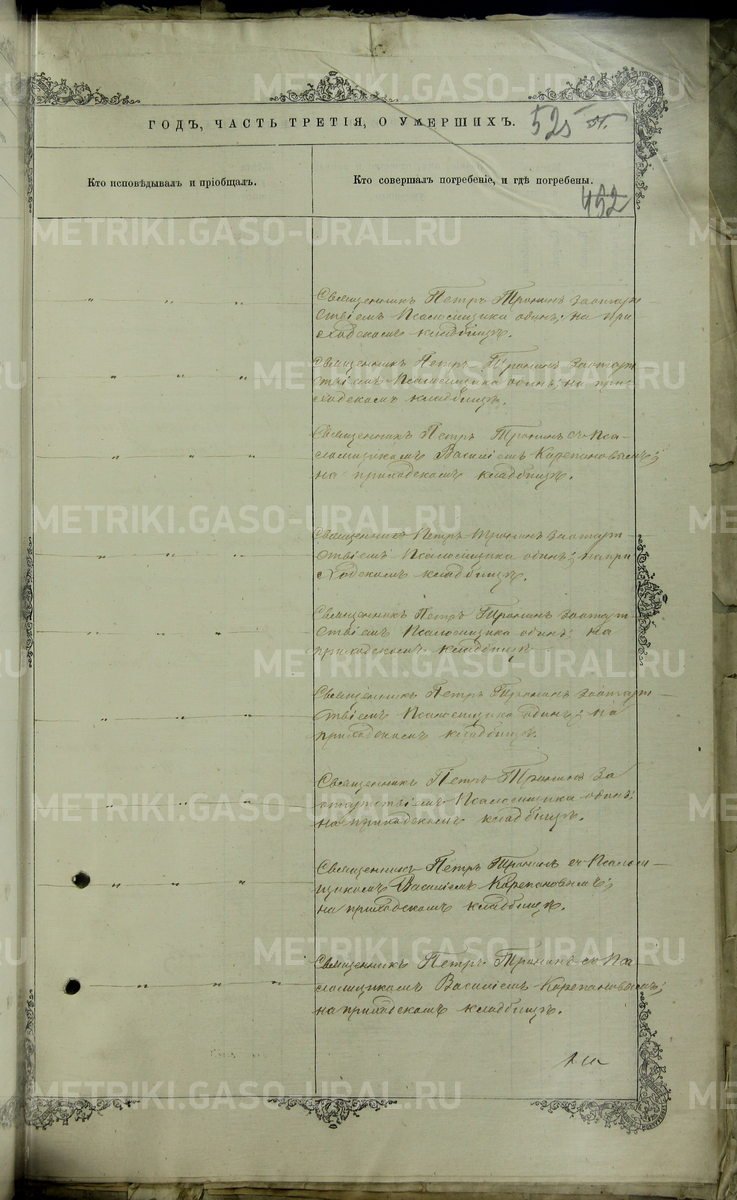 METRIKI.GASO-URAL.RU
ГОДЪ, ЧАСТЬ ТРЕТІЯ, О УМЕРШИХЪ.
Кто исповѣдывалъ и пріобщалъ.
Кто совершалъ погребеніе, и гдѣ погребены.
492
Священникъ Петръ Тронинъ за отсут
ствіемъ Псаломщика одинъ; на при
ходскомъ кладбищѣ.
Священникъ Петръ Тронинъ за отсут
ствіемъ Псаломщика одинъ; на при
ходскомъ кладбищѣ.
Священникъ Петръ Тронинъ съ Пса-
ломщикомъ Василіемъ Карепановымъ;
на приходскомъ кладбищѣ.
Священникъ Петръ Тронинъ за отсут
ствіемъ Псаломщика одинъ; на при
ходскомъ кладбищѣ.
Священникъ Петръ Тронинъ за отсут
ствіемъ Псаломщика одинъ; на
приходскомъ кладбищѣ
Священникъ Петръ Тронинъ за отсут
ствіемъ Псаломщика одинъ; на
приходскомъ кладбищѣ.
Священникъ Петръ Тронинъ за
отсутствіемъ Псаломщика одинъ;
на приходскомъ кладбищѣ.
Священникъ Петръ Тронинъ съ Псалом
щикомъ Василіемъ Карепановымъ;
на приходскомъ кладбищѣ.
Священникъ Петръ Тронинъ съ Пса
ломщикомъ Василіемъ Карепановымъ;
на приходскомъ кладбищѣ.